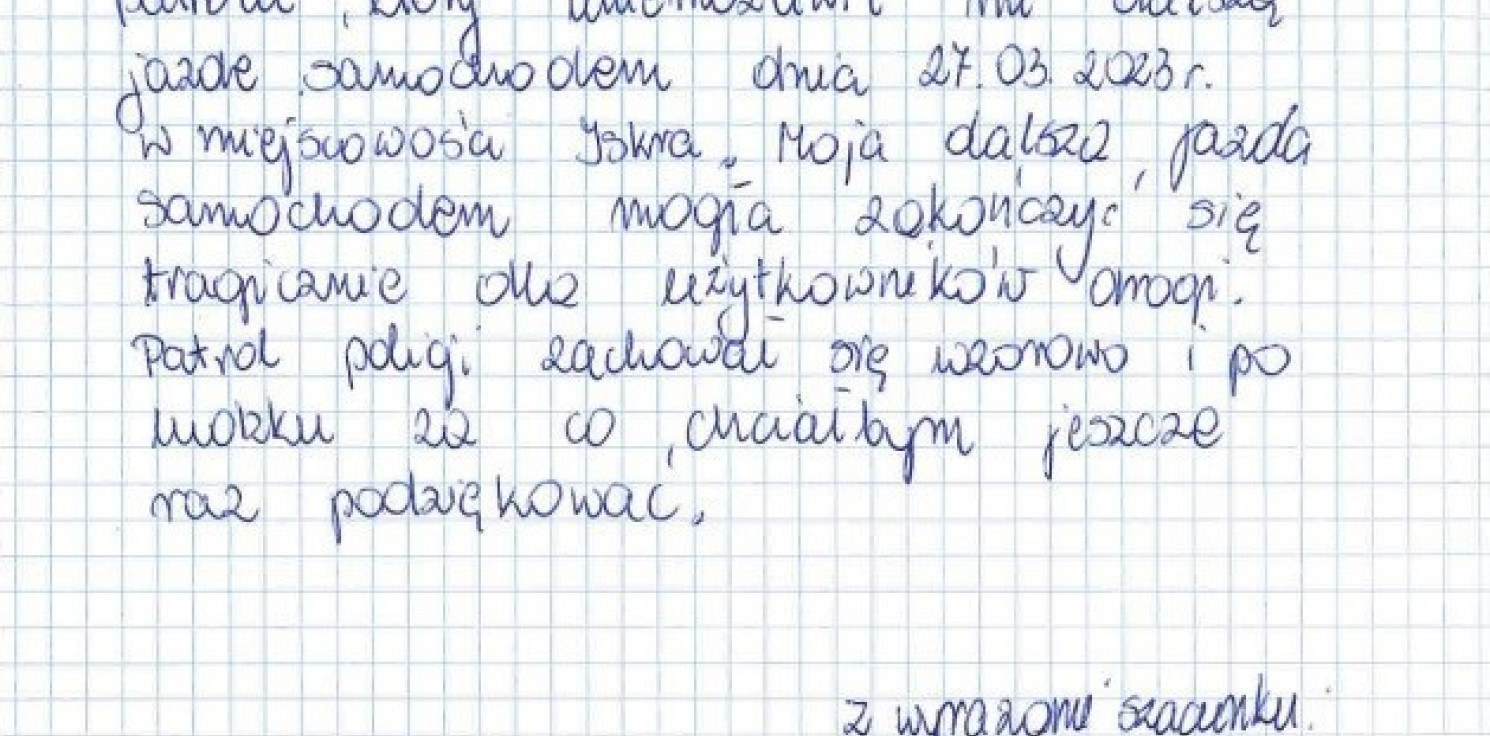 patrolu, który uniemożliwił mi dalszą
jazdę samochodem dnia 27.03.2023r.
w miejscowości Iskra. Moja dalsza jazda
samochodem mogła zakończyć się
tragicznie dla użytkowników drogi.
Patrol policji zachował się wzorowo i po
ludzku za co, chciałbym jeszcze
raz podziękować.
z wyrazami szacunku.